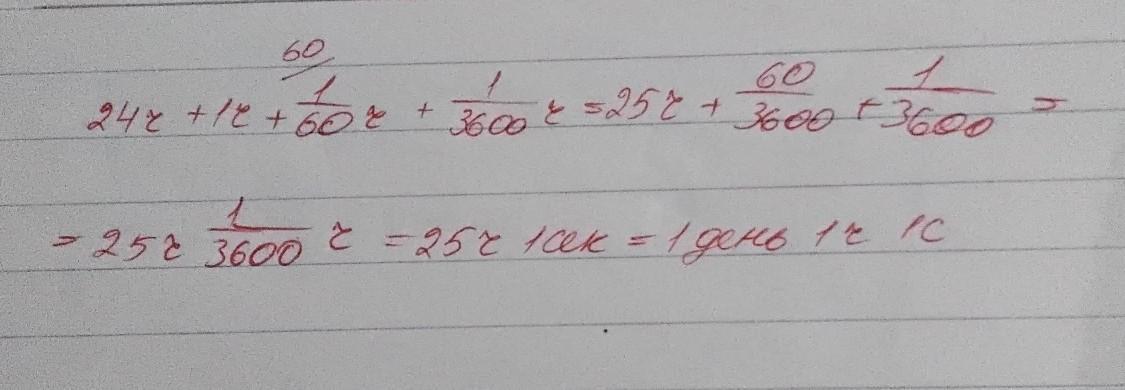 24ч + 1ч + 1/60 ч (60/) + 1/3600 ч = 25ч + 60/3600 + 1/3600 =
= 25ч 1/3600 ч = 25ч 1сек = 1 день 1ч 1с